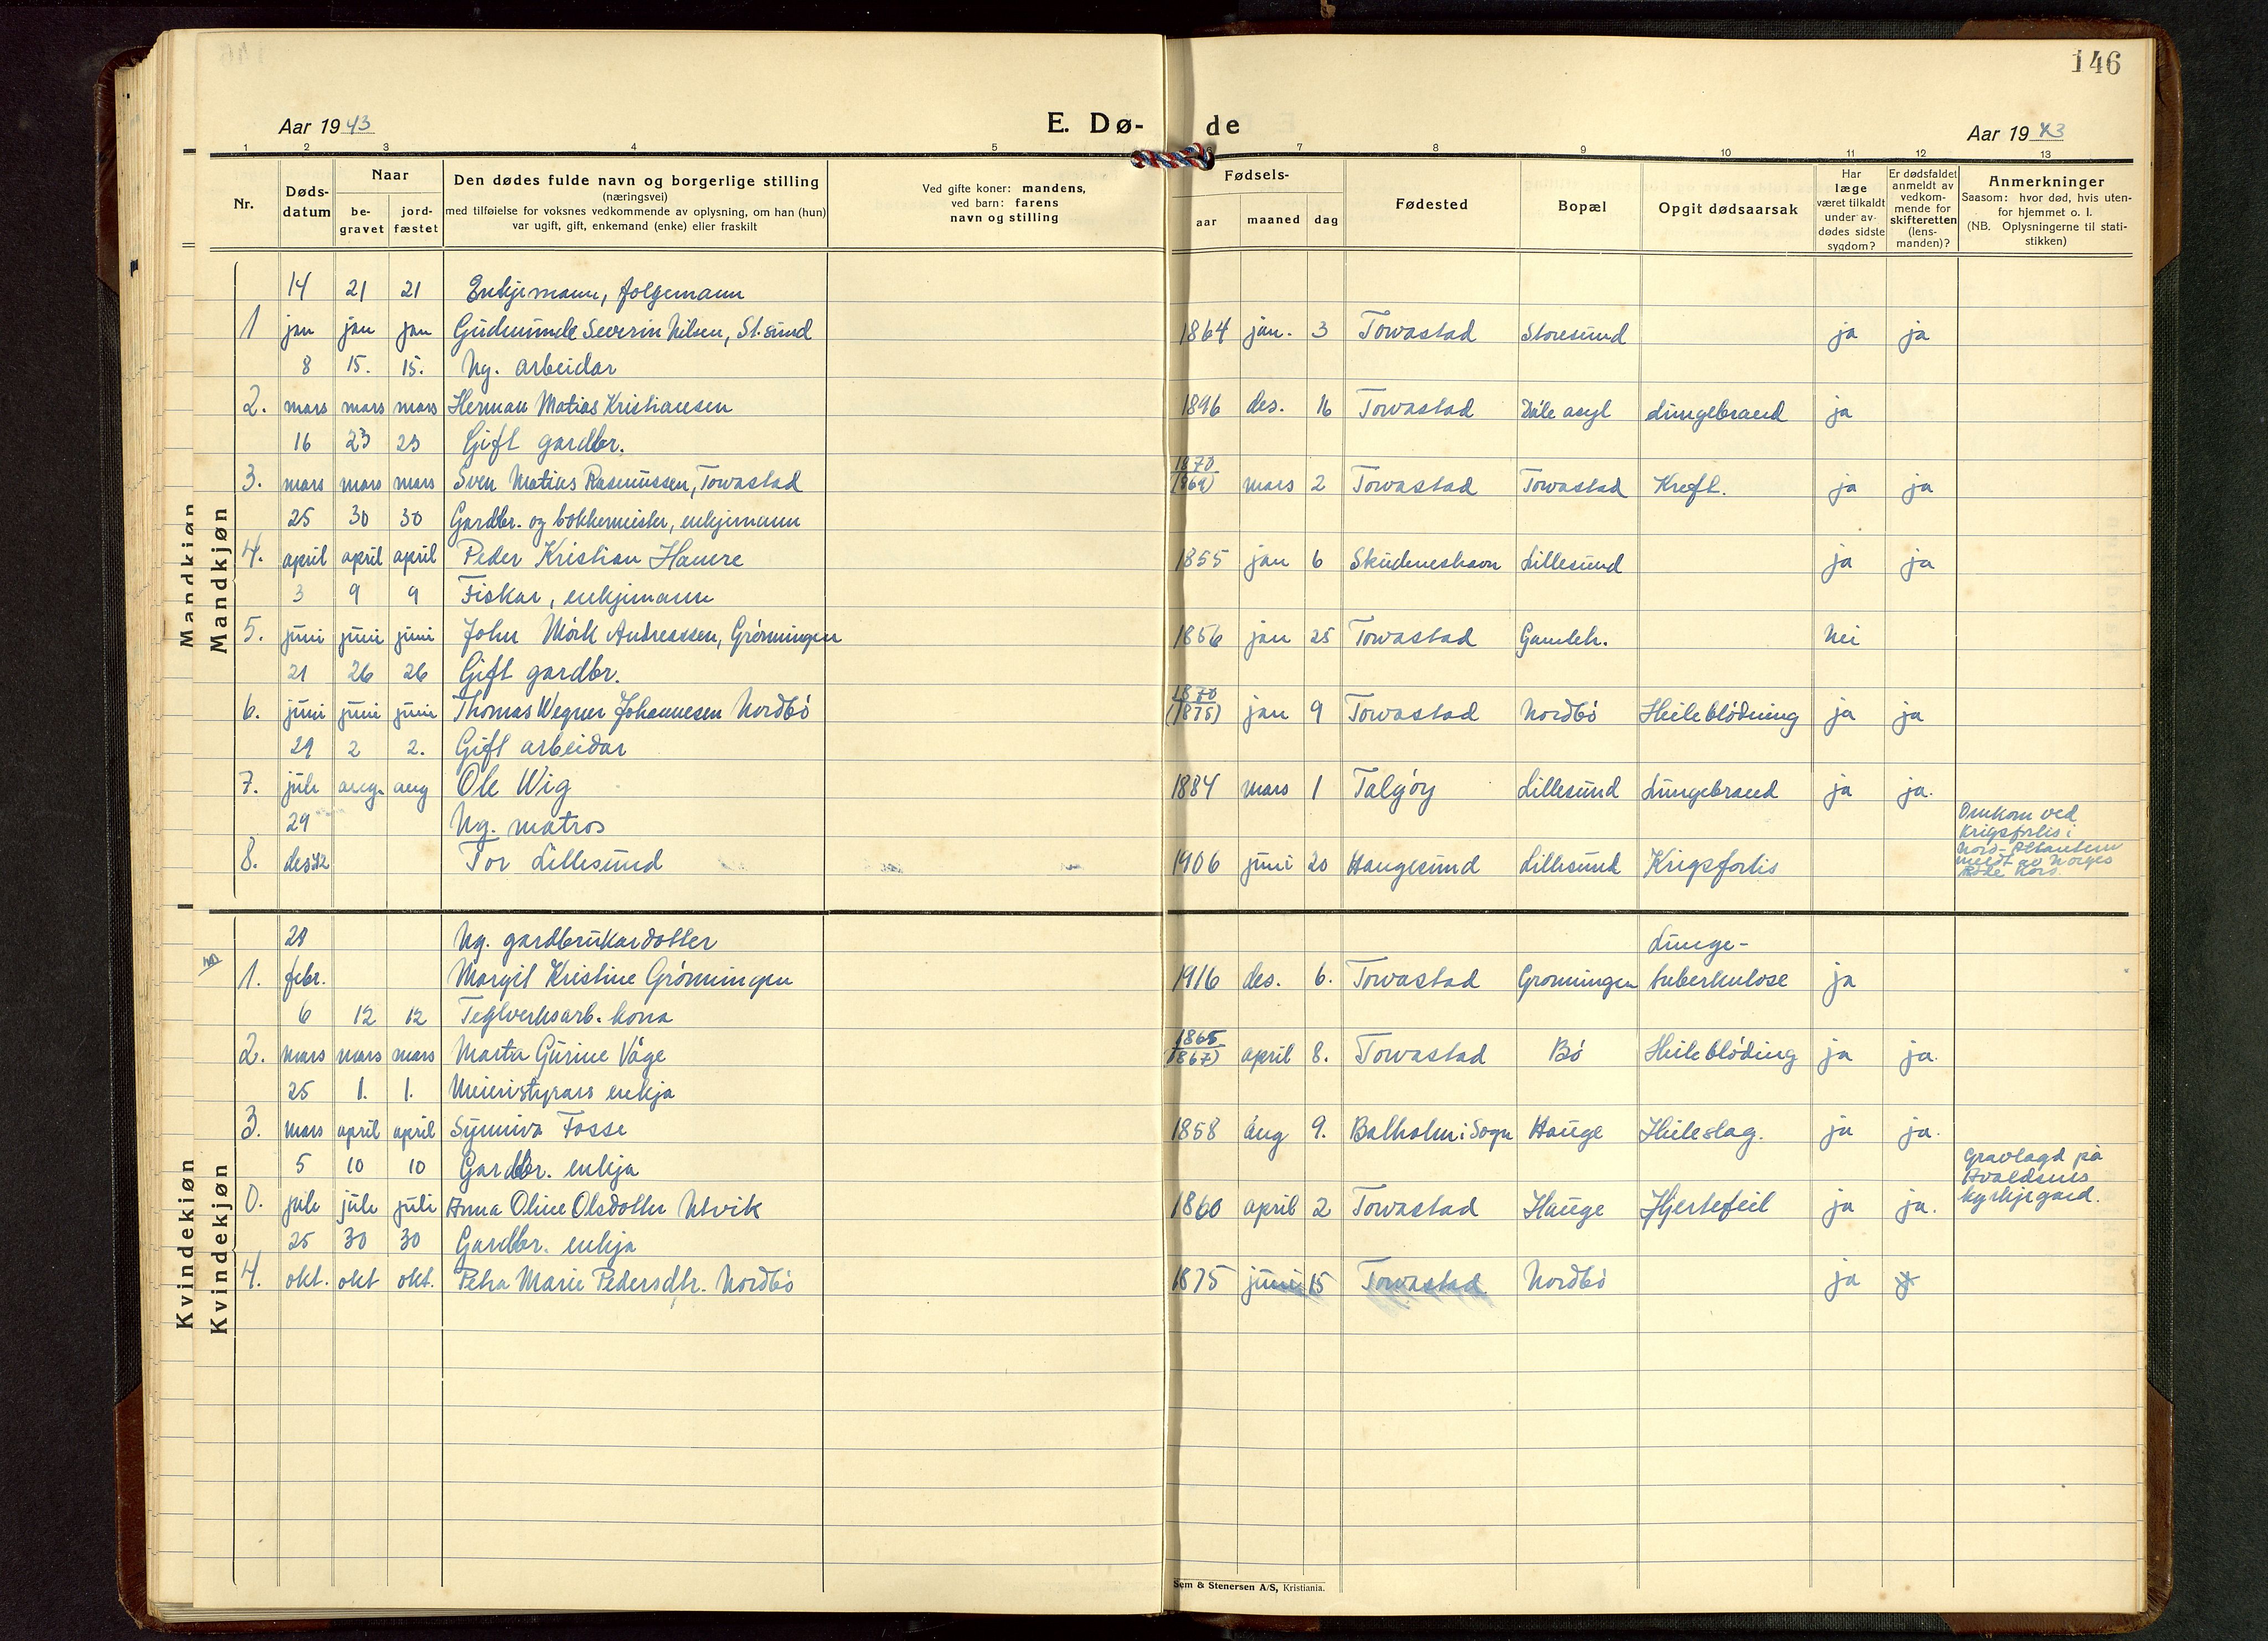 146
Aar 1943
E. Dø-
de
Aar 1943
1 2 3 4 5 7 8 9 10 11 12 13
Nr.
Døds-
datum
Naar
be-
gravet
jord-
fæstet
Den dødes fulde navn og borgerlige stilling
(næringsvei)
med tilføielse for voksnes vedkommende av oplysning, om han (hun)
var ugift, gift, enkemand (enke) eller fraskilt
Ved gifte koner: mandens,
ved barn: farens
navn og stilling
Fødsels-
aar maaned dag
Fødested
Bopæl
Opgit dødsaarsak
Har
læge
været tilkaldt
under av-
dødes sidste
sygdom?
Er dødsfaldet
anmeldt av
vedkom-
mende for
skifteretten
(lens-
manden)?
Anmerkninger
Saasom: hvor død, hvis uten-
for hjemmet o. l.
(NB. Oplysningerne til stati-
stikken)
Mandkjøn
Mandkjøn
14 21 21 Enkjemann, folgemann
1 jan jan jan Gudmunde Severin Nilsen, St.sund 1864 jan. 3 Torvastad Storesund ja ja
8 15. 15. Ug. arbeidar
2. mars mars mars Herman Matias Kristiansen 1896 des. 16 Torvastad Dåle asyl Lungebrand ja
16 23 23 Gift gardbr.
3. mars mars mars Sven Matias Rasmussen, Torvastad 1870 (1869) mars 2 Torvastad Torvastad Kreft. ja ja
25 30 30 Gardbr. og bøkkermeister, enkjemann
4. april april april Peder Kristian Hamre 1855 jan 6 Skudeneshavn Lillesund ja ja
3 9 9 Fiskar, enkjemann
5. juni juni juni John Mørk Andreassen, Grønningen 1856 jan 25 Torvastad Gamleh. Nei
21 26 26 Gift gardbr.
6. juni juni juni Thomas Wegner Johannesen Nordbö 1870 (1875) jan 9 Torvastad Nordbö Heileblödning ja ja
29 2 2. Gift arbeidar
7. juli aug. aug Ole Wig 1884 mars 1 Talgöy Lillesund Lungebrand ja ja.
29 Ug. matros
8. des 42 Tor Lillesund 1906 juni 20 Haugesund Lillesund Krigsforlis
Omkom ved
Krigsforlis i
Nord-Atlantern
meldt av Norges
Röde Kors.
Kvindekjøn
Kvindekjøn
28 Ug. gardbrukardotter Lunge-
1. febr. Margit Kristine Grönningen 1916 des. 6. Torvastad Grønningen tuberkulose ja
6 12 12 Teglverksarb. kona
2. mars mars mars Marta Gurine Våge 1865 (1867) april 8. Torvastad Bö Heileblöding ja ja.
25 1. 1. Meieristyrars enkja
3. mars april april Synniva Fosse 1858 aug 9. Balholm i Sogn Hauge Heileslag. ja ja.
5 10 10 Gardbr. enkja
0. juli juli juli Anna Oline Olsdotter Utvik 1860 april 2 Torvastad Hauge Hjertefeil ja ja.
Gravlagd på
Avaldsnes
kyrkjegard.
25 30 30 Gardbr. enkja
4. okt. okt okt. Petra Marie Pedersdtr. Nordbö 1875 juni 15 Torvastad Nordbö ja
Sem & Stenersen A/S, Kristiania.